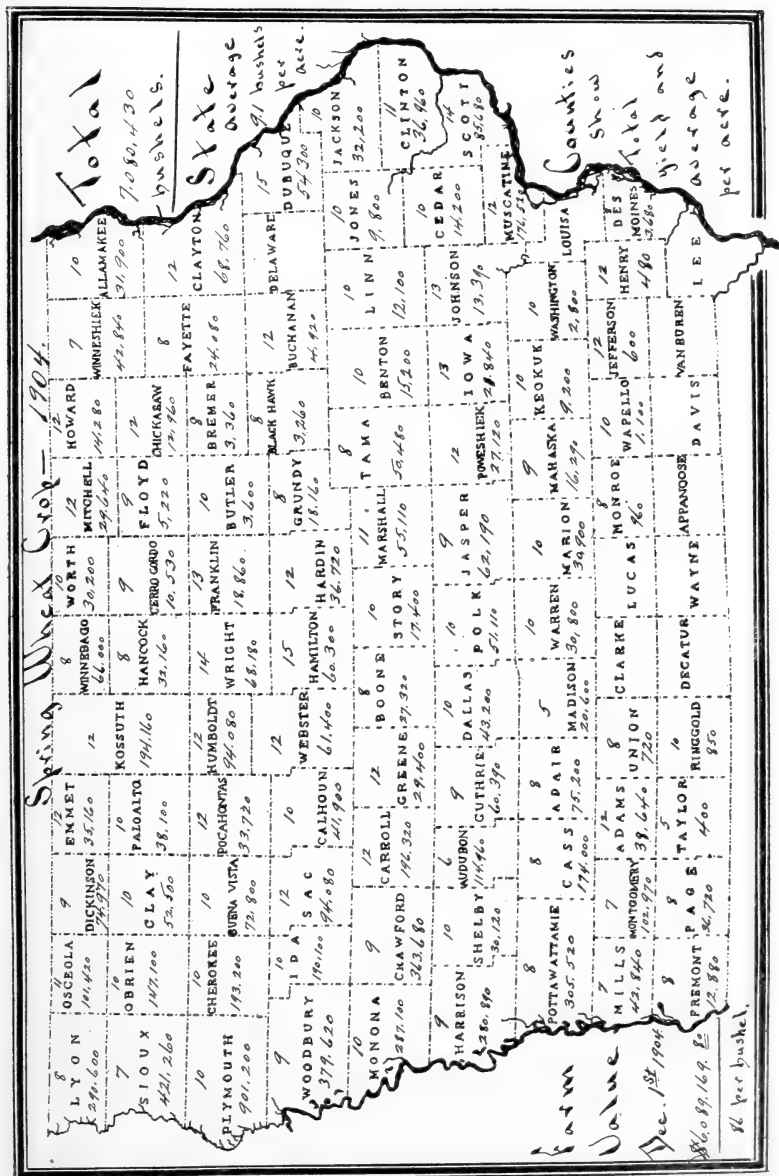 Spring Wheat Crop — 1904.
Total
7,080,430
bushels.
State
average
9.1 bushels
per
acre.
8
LYON
290,600
11
OSCEOLA
101,420
9
DICKINSON
12
EMMET
35,160
8
WINNEBAGO
66,000
10
WORTH
30,200
12
MITCHELL
29,640
12
HOWARD
14,280
7
WINNESHIEK
42,840
10
ALLAMAKEE
31,900
7
SIOUX
421,260
10
OBRIEN
147,100
10
CLAY
52,500
10
PALOALTO
38,100
12
KOSSUTH
194,160
8
HANCOCK
32,160
9
CERRO GORDO
10,530
9
FLOYD
5,220
12
CHICKASAW
12,960
8
FAYETTE
24,080
12
CLAYTON
68,760
10
PLYMOUTH
901,200
10
CHEROKEE
193,200
10
BUENA VISTA
72,800
12
POCAHONTAS
33,720
12
HUMBOLDT
94,080
14
WRIGHT
68,180
13
FRANKLIN
18,860
10
BUTLER
3,600
8
BREMER
3,360
9
WOODBURY
379,620
10
IDA
190,100
12
SAC
94,080
10
CALHOUN
41,900
12
WEBSTER
61,400
15
HAMILTON
60,300
12
HARDIN
36,720
8
GRUNDY
18,160
8
BLACK HAWK
3,260
12
BUCHANAN
4,920
DELAWARE
15
DUBUQUE
54,300
10
MONONA
287,100
9
CRAWFORD
363,680
12
CARROLL
196,320
12
GREENE
29,400
8
BOONE
27,320
10
STORY
17,400
11
MARSHALL
55,110
8
TAMA
50,480
10
BENTON
15,200
10
LINN
12,100
10
JONES
9,800
10
JACKSON
32,200
11
CLINTON
36,960
9
HARRISON
280,890
10
SHELBY
30,120
6
AUDUBON
114,960
9
GUTHRIE
60,390
10
DALLAS
43,200
10
POLK
51,110
9
JASPER
62,190
12
POWESHIEK
27,120
13
IOWA
28,840
13
JOHNSON
13,390
10
CEDAR
14,200
14
SCOTT
85,680
12
MUSCATINE
8
POTTAWATTAMIE
305,520
8
CASS
174,000
8
ADAIR
75,200
5
MADISON
20,600
10
WARREN
30,800
10
MARION
30,900
9
MAHASKA
16,290
10
KEOKUK
9,200
10
WASHINGTON
2,800
LOUISA
7
MILLS
42,840
7
MONTGOMERY
102,970
12
ADAMS
38,640
8
UNION
720
CLARKE
LUCAS
8
MONROE
960
10
WAPELLO
1,100
12
JEFFERSON
600
12
HENRY
480
DES
MOINES
3,680
8
FREMONT
12,880
8
PAGE
36,720
5
TAYLOR
400
10
RINGGOLD
850
DECATUR
WAYNE
APPANOOSE
DAVIS
VAN BUREN
LEE
Counties
Show
Total
yield and
average
per acre.
Farm
Value
Dec. 1st 1904
$6,089,169.80
86 per bushel.